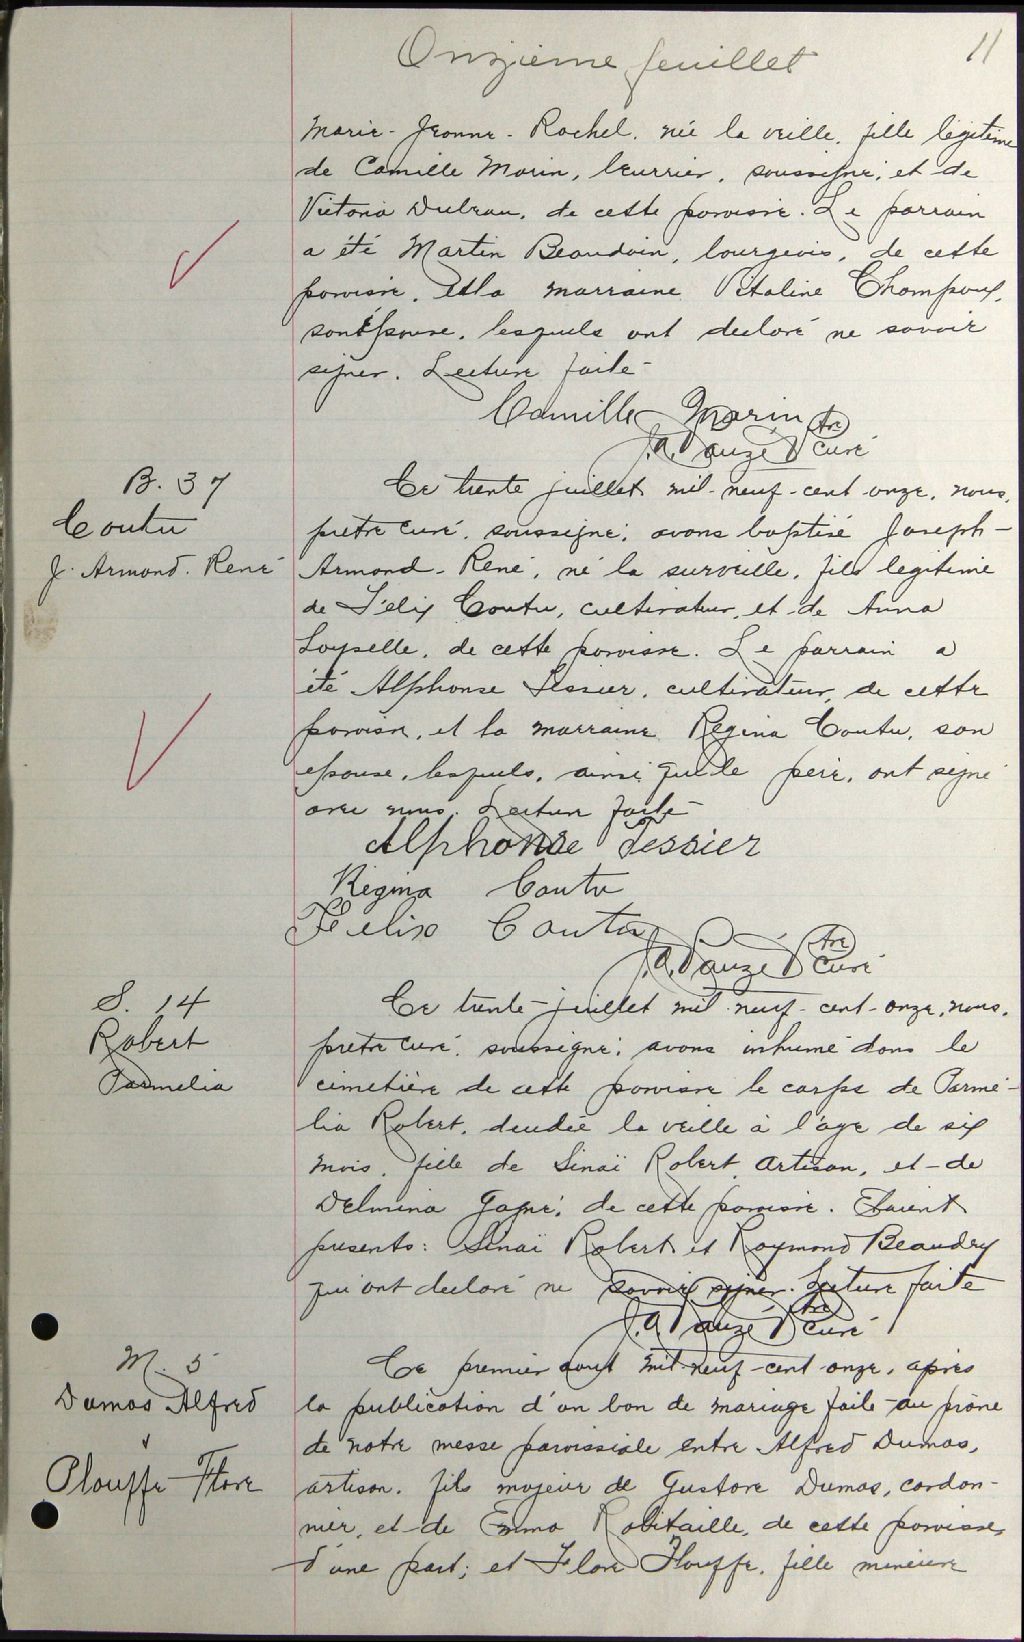 Onzième feuillet
11
Marie-Jeanne-Rachel, née la veille, fille légitime
de Camille Morin, beurrier, soussigné, et de
Victoria Dubeau, de cette paroisse. Le parrain
a été Martin Beaudoin, bourgeois, de cette
paroisse, et la marraine Vitaline Champoux,
son épouse, lesquels ont declaré ne savoir
signer. Lecture faite-
Camille Morin
J.A. Dauzé Ptre curé
B. 37
Coutu
J. Armand. René
Ce trente juillet mil-neuf-cent-onze, nous,
prêtre curé, soussigné, avons baptisé Joseph-
Armand-René, né la surveille, fils legitime
de Félix Coutu, cultivateur, et de Anna
Loyselle, de cette paroisse. Le parrain a
été Alphonse Tessier, cultivateur, de cette
paroisse, et la marraine Régina Coutu, son
epouse, lesquels, ainsi que le père, ont signé
avec nous. Lecture faite-
Alphonse Tessier
Regina Coutu
Felix Coutu
J.A. Dauzé Ptre curé
S. 14
Robert
Parmelia
Ce trente-juillet mil neuf-cent-onze, nous,
prêtre curé, soussigné, avons inhumé dans le
cimetière de cette paroisse le corps de Parmé-
lia Robert, decedée la veille à l'âge de six
mois, fille de Sinaï Robert, artisan, et-de
Delmina Gagné, de cette paroisse. Etaient
presents: Sinaï Robert et Raymond Beaudry
qui ont declaré ne savoir signer. Lecture faite
J.A. Dauzé Ptre curé
M. 5
Dumas Alfred
&
Plouffe Flore
Ce premier aout mil-neuf-cent onze, après
la publication d'un ban de mariage faite-au prône
de notre messe paroissiale entre Alfred Dumas,
artisan, fils majeur de Gustave Dumas, cordon-
nier, et-de Emma Robitaille, de cette paroisse,
d'une part; et Flore Plouffe, fille mineure